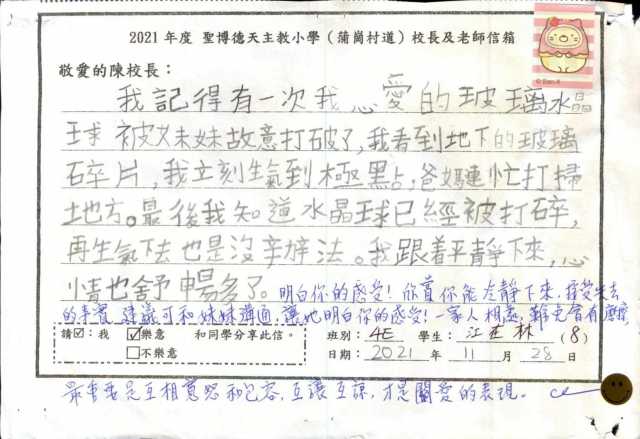 2021 年度 聖博德天主教小學（蒲崗村道）校長及老師信箱
敬愛的陳校長：
我記得有一次我心愛的玻璃水晶
球被妹妹故意打破了,我看到地下的玻璃
碎片,我立刻生氣到極點,爸媽連忙打掃
地方。最後我知道水晶球已經被打碎,
再生氣下去也是沒辦法。我跟着平靜下來,心
情也舒暢多了。明白你的感受！欣賞你能冷靜下來,接受失去
的事實,建議可和妹妹溝通,讓她明白你的感受！一家人相處,難免會有磨擦,
請☑：我 ☑樂意 和同學分享此信。 班別：4E 學生：江 林 (8)
□不樂意 日期：2021 年 11 月 28 日
最重要是互相寬恕和包容,互讓互諒,才是關愛的表現。